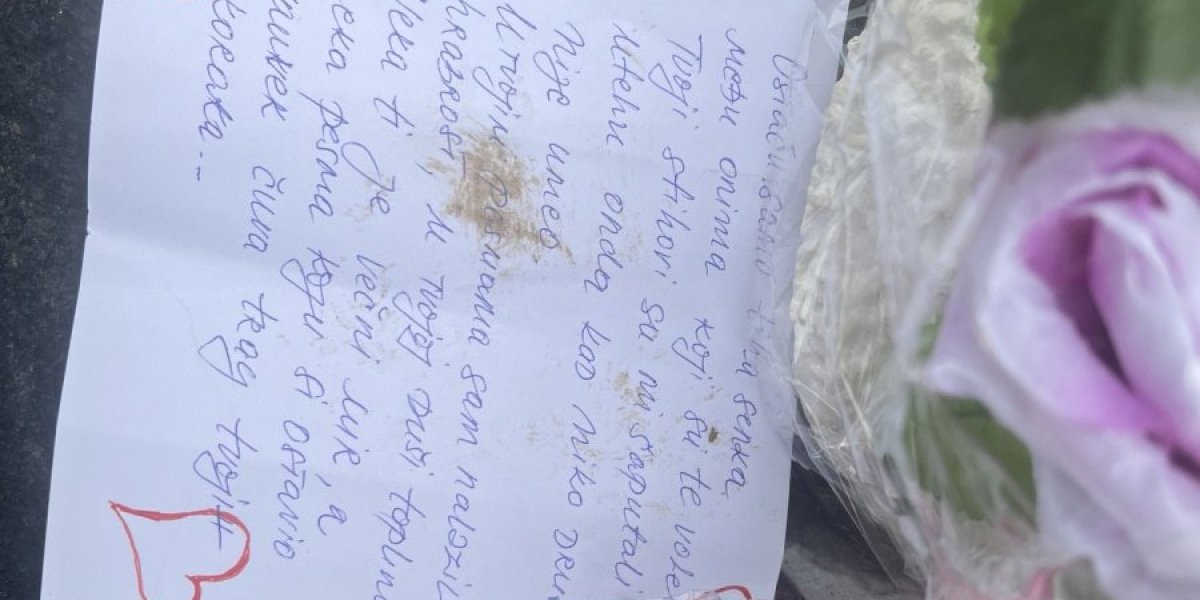 Ostaću samo tiha senka
među onima koji su te vole
Tvoji stihovi su mi šaputali
utehu onda kad niko dru
nije umeo
U tvojim pesmama sam nalazil
hrabrost, u tvojoj duši toplin
neka ti je večni mir, a
eka pesma koju si ostavio
čuva trag tvojih
koraka...